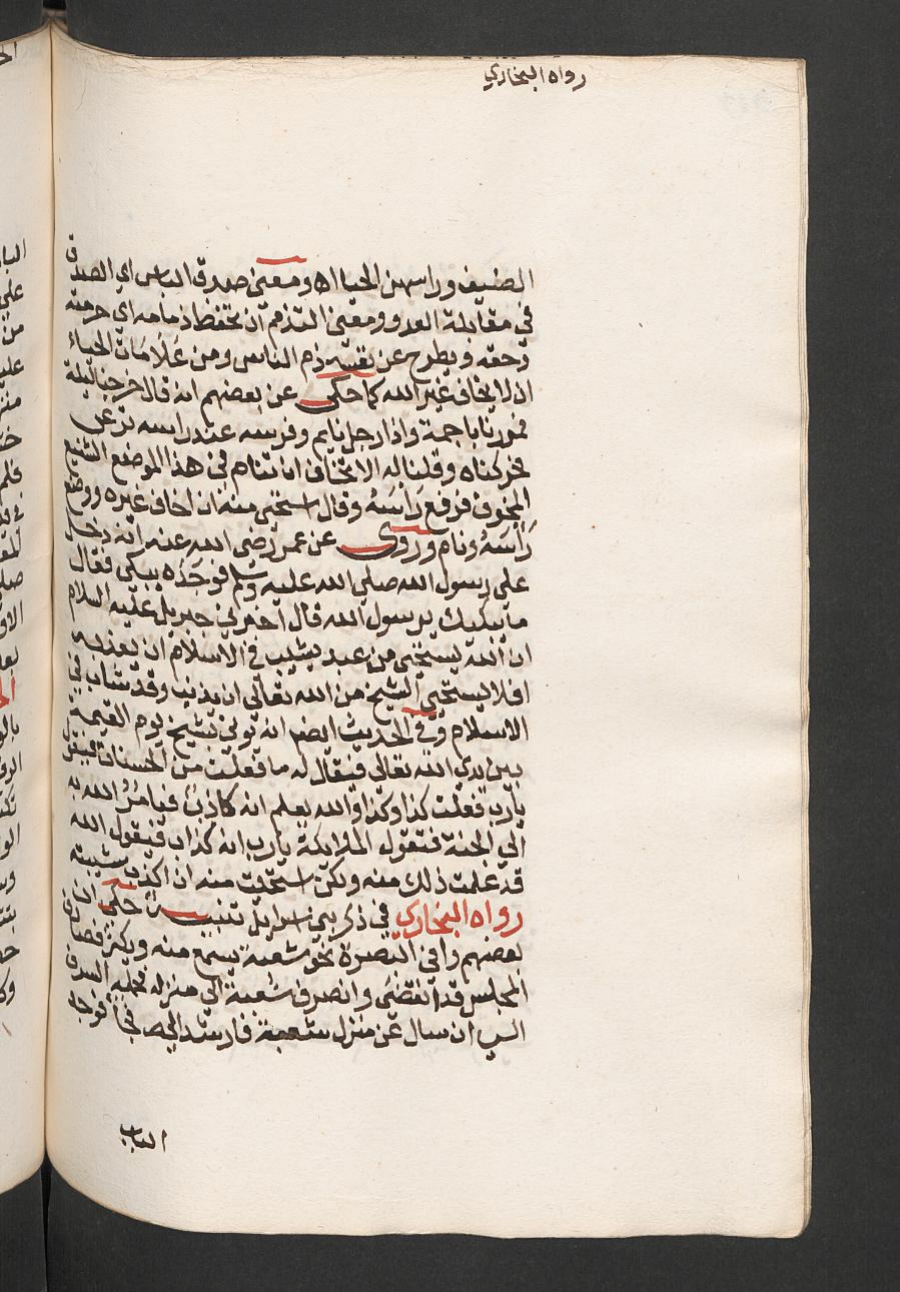 رواه البخاري
الضيف وراسهن الحيا اه ومعنى صدق الباس اي الصدق
في مقابلة العدو ومعنى التذمم ان يحفظ ذمامه اي حرمته
وحقه ويطرح عن نفسه ذم الناس ومن عَلَامَات الحياء
ان لا يخاف غير الله كما حكى عن بعضهم انه قال خرجنا ليلة
فمررنا باجمة واذا رجل نايم وفرسه عند راسه ترعى
فحركناه وقلنا له الا تخاف ان تنام في هذا الموضع الشنيع
المخوف فرفع رَأْسَهُ وقال استحى منه ان اخاف غيره ووضع
رَأْسَهُ ونام وروى عن عمر رضى الله عنه انه دخل
على رسول الله صلي الله عليه وسلم فوجَدَه يبكى فقال
ما يبكيك يرسول الله قال اخبرني جبريل عليه السلام
ان الله يستحى من عبد يشيب في الاسلام ان يعذبه
افلا يستحيي الشيخ من الله تعالى ان يذنب وقد شاب في
الاسلام وفى الحديث ايضا انه يوتى بشيخ يوم القيمة
بين يدي الله تعالى فيقال له ما فعلت من الحسنات فيقول
يارب فعلت كذا وكذا والله يعلم انه كاذبٌ فيامُرُ الله به
الي الجنة فتقول الملايكة يارب انه كذاب فيقول الله
قد علمت ذلك منه ولكن استحيت منه ان اكذب شيبته
رواه البخاري في ذكر بني اسرايل تنبيه حكى ان
بعضهم وافى البصرة نحو شعبة يسمع منه ويكثر فصادف
المجلس قد انقضى وانصرف شعبة الى منزله فحمله الشره
الى ان سال عن منزل شعبة فارشد اليه فجا فوجد
الباب